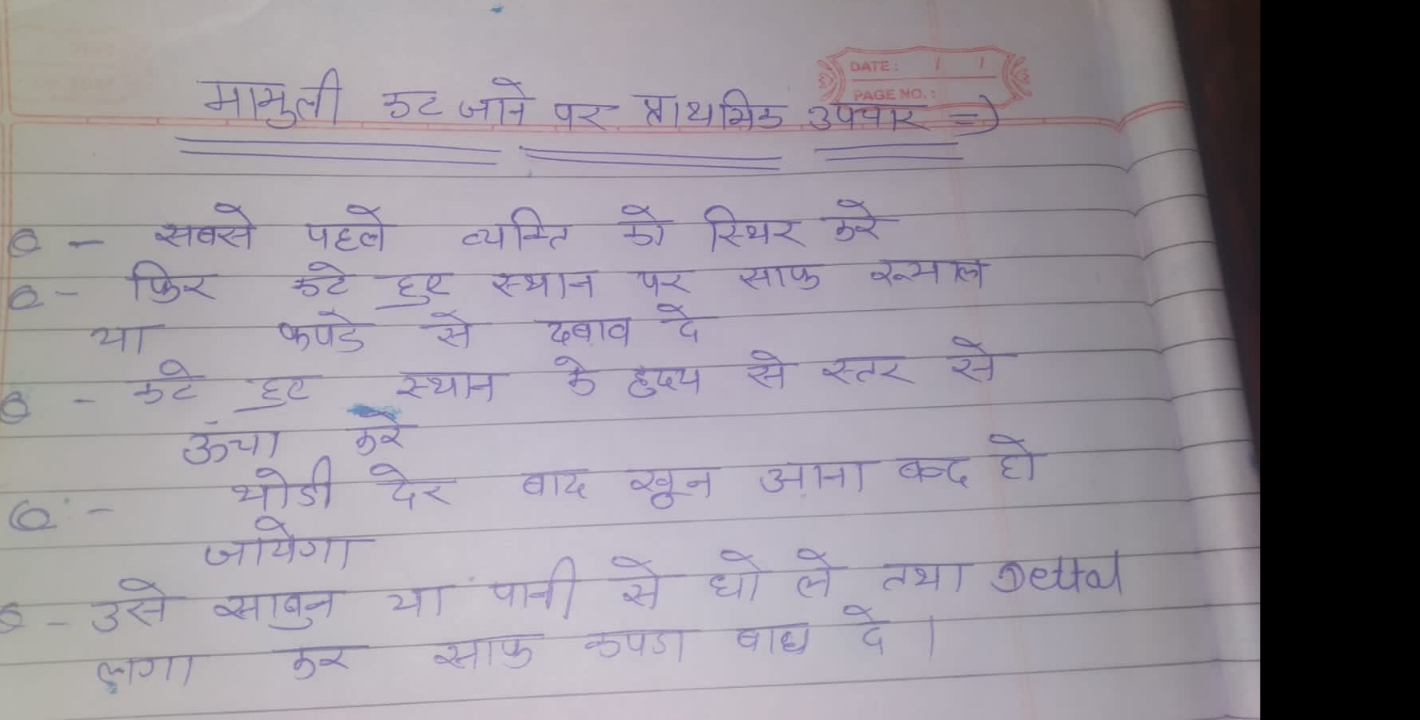 DATE: / /
PAGE NO.:
मामुली कट जाने पर प्राथमिक उपचार =)
- सबसे पहले व्यक्ति को स्थिर करे
- फिर कटे हुए स्थान पर साफ रुमाल
या कपडे से दबाव दे
- कटे हुए स्थान के हृदय से स्तर से
ऊंचा करे
- थोडी देर बाद खून आना बन्द हो
जायेगा
- उसे साबुन या पानी से धो ले तथा Dettol
लगा कर साफ कपडा बाध दे।